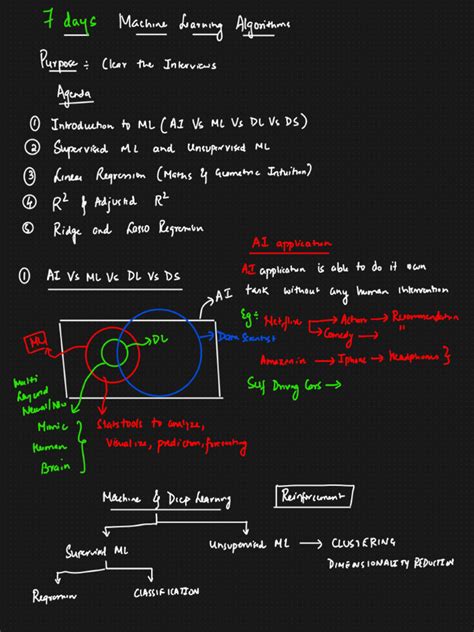 7 days Machine Learning Algorithms
Purpose ÷ Clear the Interviews
Agenda
① Introduction to ML (AI Vs ML Vs DL Vs DS)
② Supervised ML and Unsupervised ML
③ Linear Regression (Maths & Geometric Intuition)
④ R² & Adjusted R²
⑤ Ridge and Lasso Regression
AI application
① AI Vs ML Vs DL Vs DS
AI application is able to do it own
task without any human intervention
AI
Eg ÷ Netflix → Action → Recommendation
→ Comedy → "
ML
DL
Data Scientist
Amazon.in → Iphone → Headphones }
Self Driving Cars →
Multi
Layered
Neural N/w
Mimic
Human
Brain
Stats tools to analyze,
Visualize, prediction, forecasting
Machine & Deep Learning
Reinforcement
Supervised ML
Unsupervised ML → CLUSTERING
DIMENSIONALITY REDUCTION
Regression
CLASSIFICATION